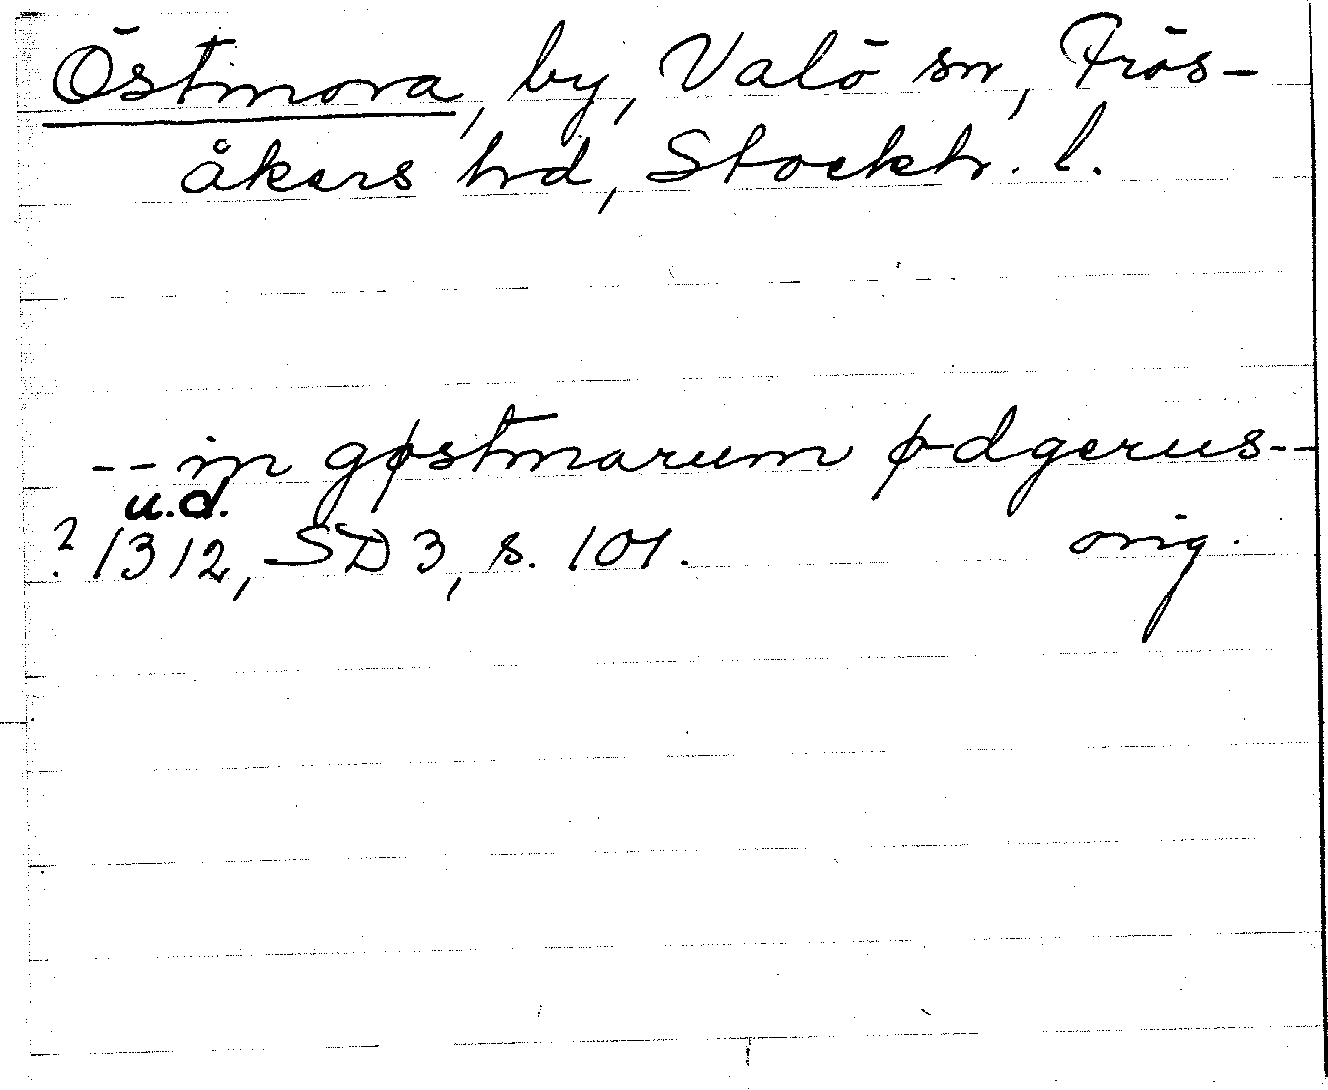 Östmora, by, Valö sn, Frös-
åkers hd, Stockh. l.
-- in gøstmarum ødgerus --
u.d.
? 1312, SD 3, s. 101. orig.